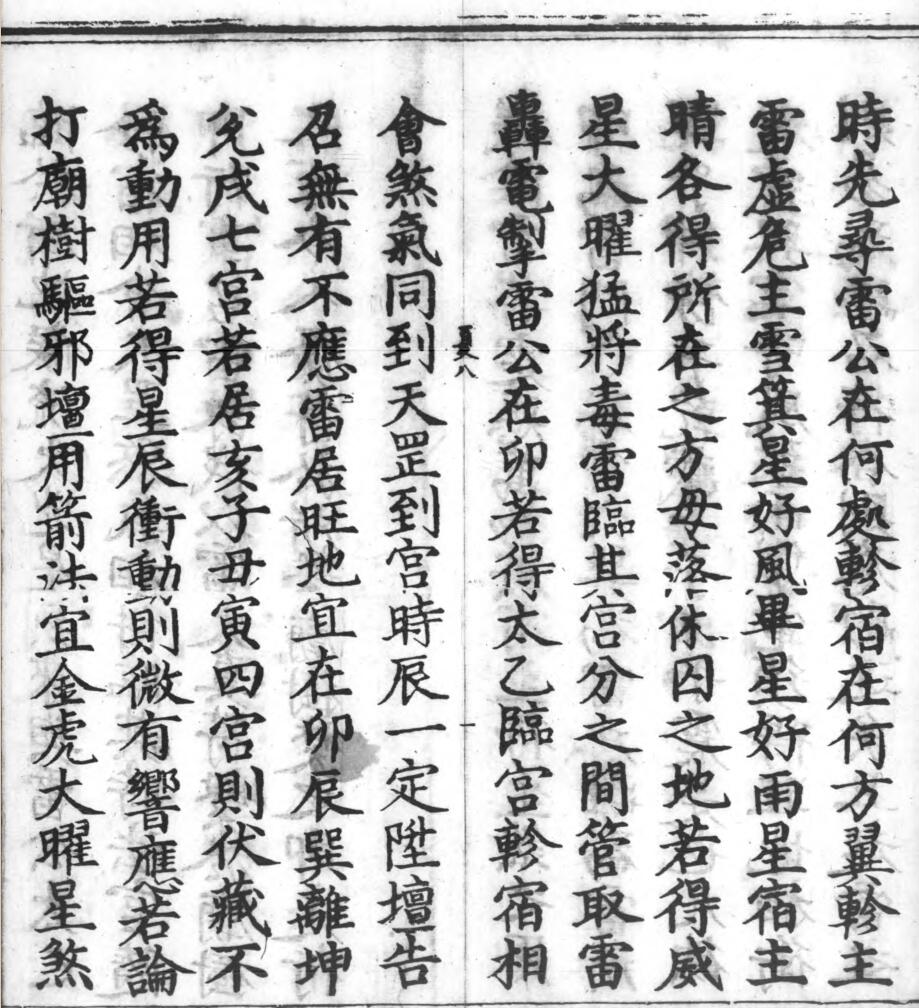 時先尋雷公在何處軫宿在何方翼軫主
雷虛危主雪箕星好風畢星好雨星宿主
晴各得所在之方毋落休囚之地若得威
星大曜猛將毒雷臨其宮分之間管取雷
轟電掣雷公在卯若得太乙臨宮軫宿相
會煞氣同到天罡到宮時辰一定陞壇告
召無有不應雷居旺地宜在卯辰巽離坤
兊戌七宮若居亥子丑寅四宮則伏藏不
爲動用若得星辰衝動則微有響應若論
打廟樹驅邪壇用箭法宜金虎大曜星煞